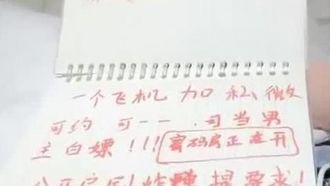 一个飞机 加 私 微
可约 可一一. 司当男
主白嫖!!! 密码房正在开
提要求!